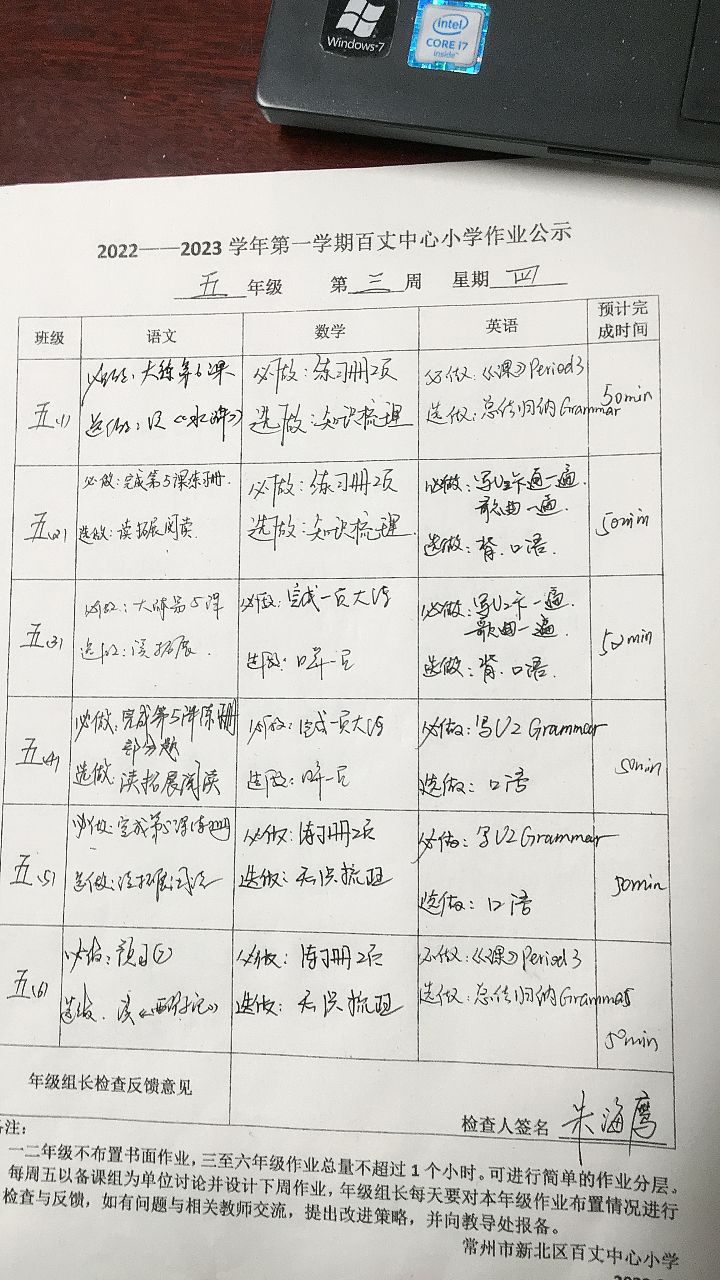 Windows 7
intel
CORE i7
inside
2022——2023 学年第一学期百丈中心小学作业公示
五 年级 第 三 周 星期 四
班级 语文 数学 英语 预计完成时间
五(1)
必做：大练第5课
选做：读《水浒》
必做：练习册2页
选做：知识梳理
必做：《课》Period3
选做：总结归纳Grammar
50min
五(2)
必做：完成第5课练习册.
选做：读拓展阅读.
必做：练习册2页
选做：知识梳理.
必做：写U2卡通一遍.
歌曲一遍.
选做：背.口语.
50min
五(3)
必做：大练第5课
选做：读拓展.
必做：完成一页大练
选做：口算一页
必做：写U2卡一遍.
歌曲一遍.
选做：背.口语.
50min
五(4)
必做：完成第5课练习册
部分题
选做：读拓展阅读
必做：完成一页大练
选做：口算一页
必做：写U2 Grammar
选做：口语
50min
五(5)
必做：完成第5课练习册
选做：读拓展阅读
必做：练习册2页
选做：知识梳理
必做：写U2 Grammar
选做：口语
50min
五(6)
必做：预习⑦
选做：读《西游记》
必做：练习册2页
选做：知识梳理
必做：《课》Period3
选做：总结归纳Grammar
50min
年级组长检查反馈意见
检查人签名 朱海鹰
备注：
一二年级不布置书面作业，三至六年级作业总量不超过 1 个小时。可进行简单的作业分层。
每周五以备课组为单位讨论并设计下周作业，年级组长每天要对本年级作业布置情况进行
检查与反馈，如有问题与相关教师交流，提出改进策略，并向教导处报备。
常州市新北区百丈中心小学